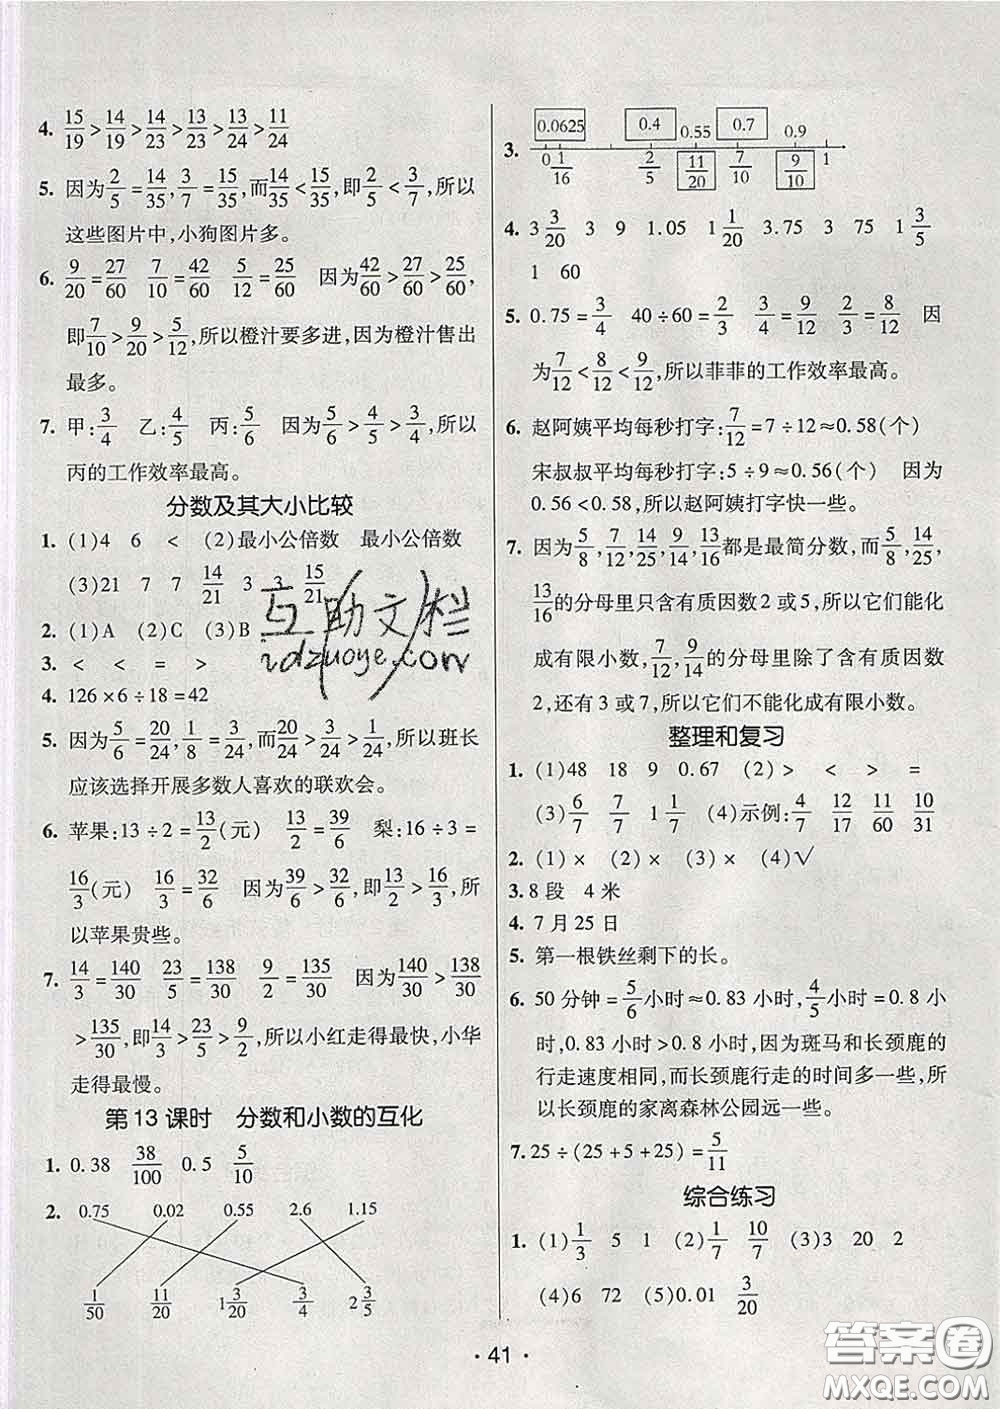 4. 15/19>14/19>14/23>13/23>13/24>11/24
5. 因为2/5=14/35,3/7=15/35,而14/35<15/35,即2/5<3/7,所以
这些图片中,小狗图片多。
6. 9/20=27/60 7/10=42/60 5/12=25/60 因为42/60>27/60>25/60,
即7/10>9/20>5/12,所以橙汁要多进,因为橙汁售出
最多。
7. 甲:3/4 乙:4/5 丙:5/6 因为5/6>4/5>3/4,所以
丙的工作效率最高。
分数及其大小比较
1. (1)4 6 < (2)最小公倍数 最小公倍数
(3)21 7 7 14/21 3 3 15/21
2. (1)A (2)C (3)B
3. < < = >
4. 126×6÷18=42
5. 因为5/6=20/24,1/8=3/24,而20/24>3/24>1/24,所以班长
应该选择开展多数人喜欢的联欢会。
6. 苹果:13÷2=13/2(元) 13/2=39/6 梨:16÷3=
16/3(元) 16/3=32/6 因为39/6>32/6,即13/2>16/3,所
以苹果贵些。
7. 14/3=140/30 23/5=138/30 9/2=135/30 因为140/30>138/30
>135/30,即14/3>23/5>9/2,所以小红走得最快,小华
走得最慢。
第13课时 分数和小数的互化
1. 0.38 38/100 0.5 5/10
2. 0.75 0.02 0.55 2.6 1.15
1/50 11/20 1 3/20 3/4 2 3/5
0.0625 0.4 0.55 0.7 0.9
3. 0 1/16 2/5 11/20 7/10 9/10 1
4. 3 3/20 3 9 1.05 1 1/20 3.75 3 75 1 3/5
1 60
5. 0.75=3/4 40÷60=2/3 3/4=9/12 2/3=8/12 因
为7/12<8/12<9/12,所以菲菲的工作效率最高。
6. 赵阿姨平均每秒打字:7/12=7÷12≈0.58(个)
宋叔叔平均每秒打字:5÷9≈0.56(个) 因为
0.56<0.58,所以赵阿姨打字快一些。
7. 因为5/8,7/12,14/25,9/14,13/16都是最简分数,而5/8,14/25,
13/16的分母里只含有质因数2或5,所以它们能化
成有限小数,7/12,9/14的分母里除了含有质因数
2,还有3或7,所以它们不能化成有限小数。
整理和复习
1. (1)48 18 9 0.67 (2)> < > =
(3)6/7 7/7 1 1/7 (4)示例:4/7 12/17 11/60 10/31
2. (1)× (2)× (3)× (4)√
3. 8段 4米
4. 7月25日
5. 第一根铁丝剩下的长。
6. 50分钟=5/6小时≈0.83小时,4/5小时=0.8小
时,0.83小时>0.8小时,因为斑马和长颈鹿的
行走速度相同,而长颈鹿行走的时间多一些,所
以长颈鹿的家离森林公园远一些。
7. 25÷(25+5+25)=5/11
综合练习
1. (1)1/3 5 1 (2)1/7 10/7 (3)3 20 2
(4)6 72 (5)0.01 3/20
· 41 ·
互助文档
idzuoye.com
答案圈
MXQE.COM